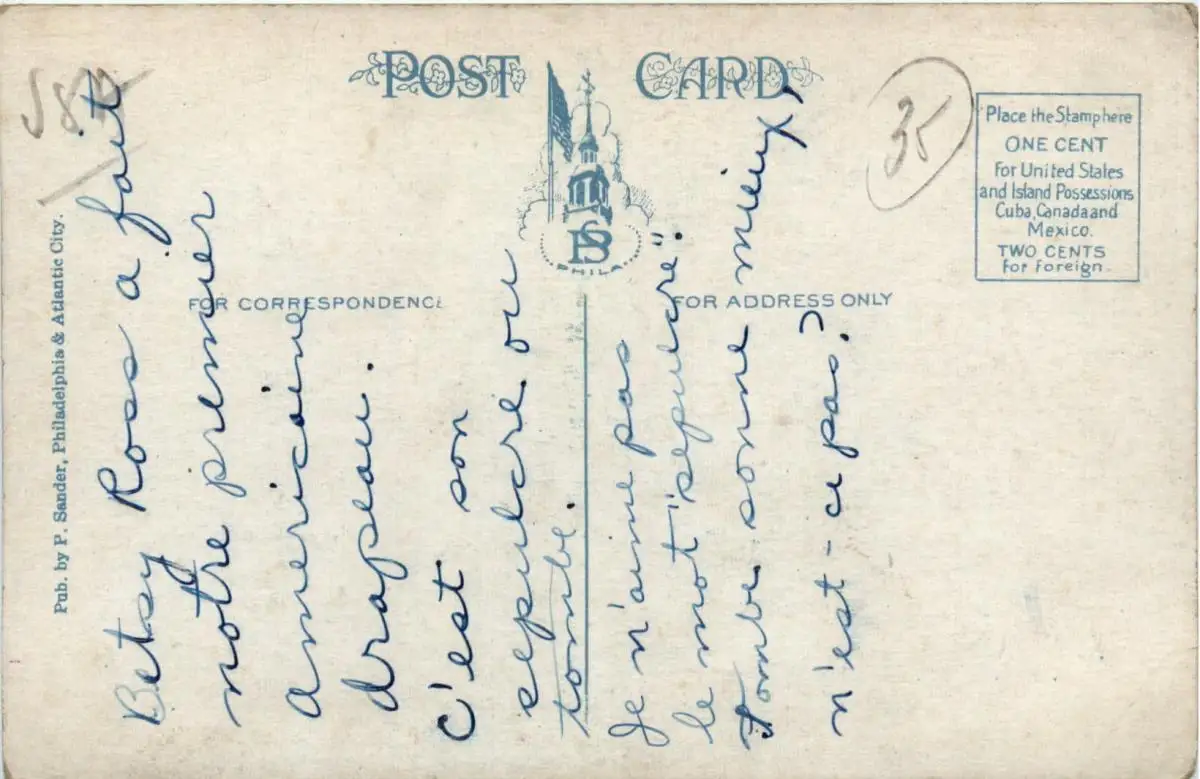 POST CARD
J82
35
Place the Stamp here
ONE CENT
For United States
and Island Possessions
Cuba, Canada and
Mexico.
TWO CENTS
For Foreign.
PSB
PHILA
FOR CORRESPONDENCE
FOR ADDRESS ONLY
Pub. by P. Sander, Philadelphia & Atlantic City.
Betsy Ross a fait
notre premier
americaine
drapeau.
C'est son
sepulcre ou
tombe.
Je n'aime pas
le mot "sepulcre".
Tombe sonne mieux,
n'est-ce pas?